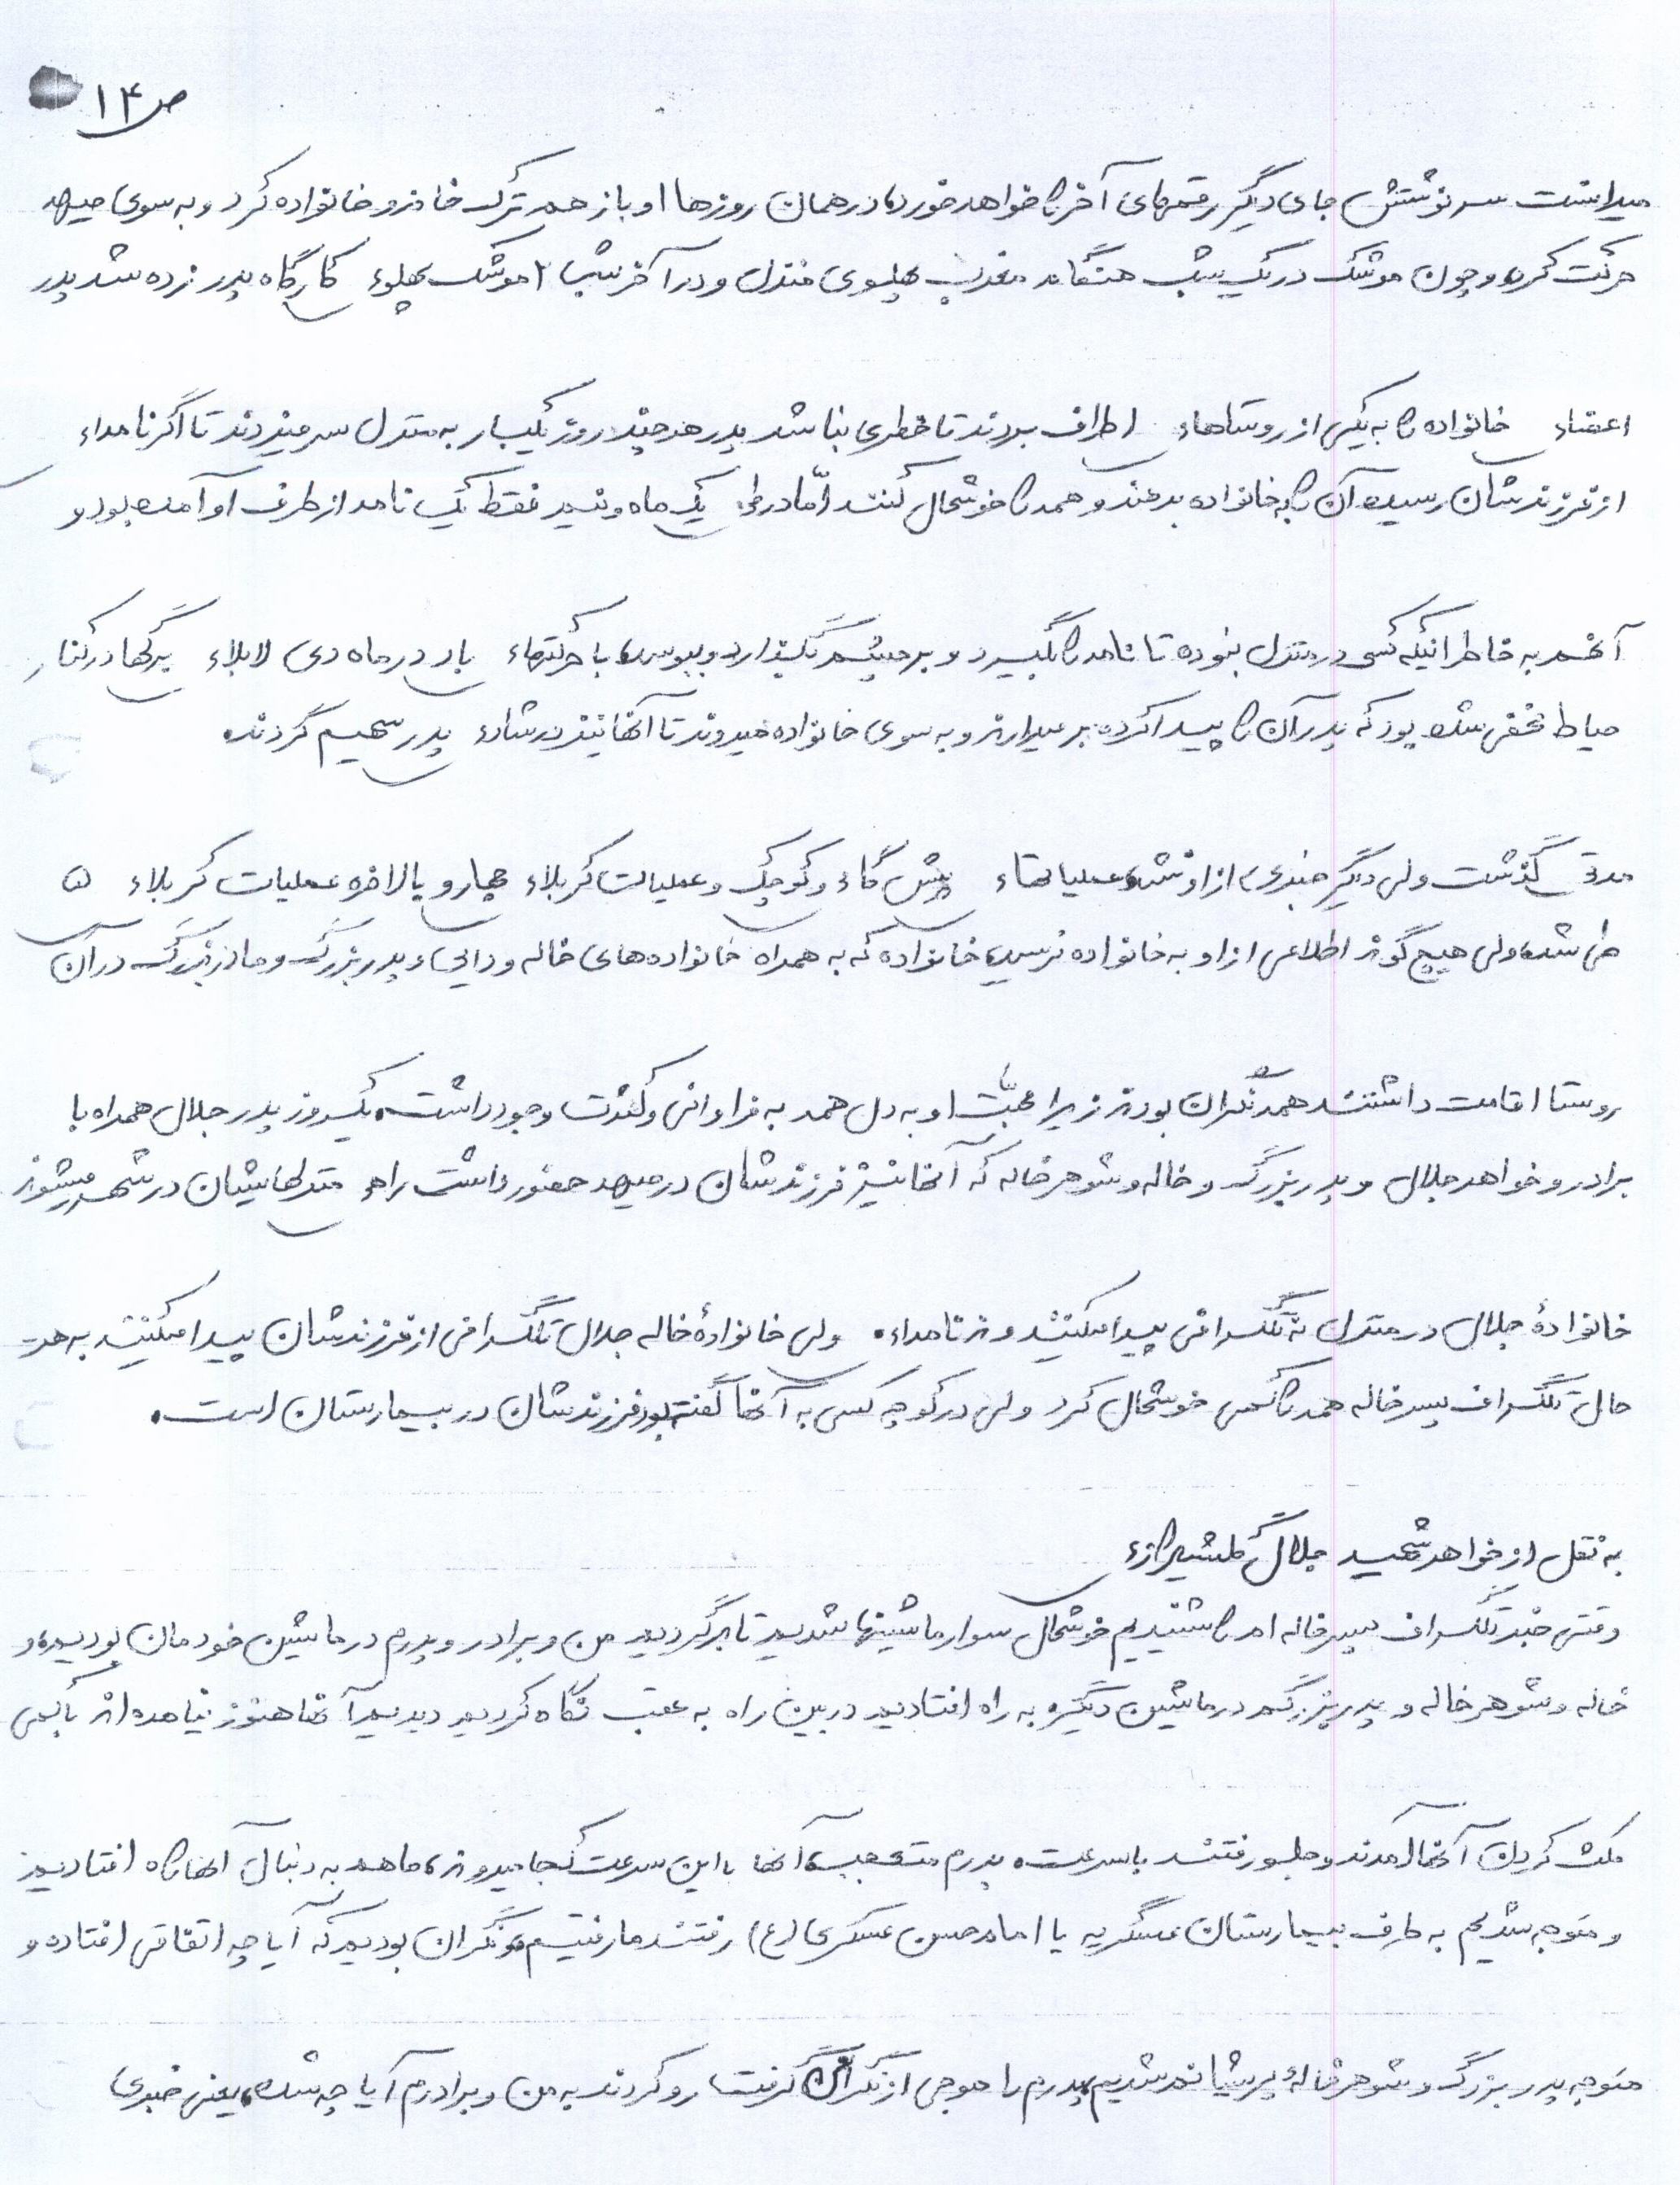 ص ۱۴
میدانست سرنوشتش جای دیگر رقمهای آخر را خواهد خورد، در همان روزها او باز هم ترک خانه و خانواده کرد و به سوی جبهه
حرکت کرد و چون موشک در یک شب هنگام مغرب پهلوی منزل و در آخر شب ۲ موشک پهلوی کارگاه پدر زده شد پدر
اعضاء خانواده را به یکی از روستاهاء اطراف بردند تا خطری نباشد پدر هر چند روز یکبار به منزل سر میزدند تا اگر نامه‌اء
از فرزندشان رسیده آن را به خانواده بدهند و همه را خوشحال کنند امّا در طی یک ماه و نیم فقط یک نامه از طرف او آمده بود و
آنهم به خاطر اینکه کسی در منزل نبوده تا نامه را بگیرد و بر چشم بگذارد و ببوسد، با حرکتهاء باد در ماه دی لابلاء برگها در کنار
حیاط مخفی شده بود که پدر آن را پیدا کرده بر میدارند و به سوی خانواده میروند تا آنها نیز در شادء پدر سهیم گردند.
مدتی گذشت ولی دیگر خبری از او نشد، عملیاتهاء بزرگ و کوچک و عملیات کربلاء چهار و بالاخره عملیات کربلاء ۵
طی شد، ولی هیچ گونه اطلاعی از او به خانواده نرسید، خانواده که به همراه خانواده‌های خاله و دایی و پدربزرگ و مادربزرگ در آن
روستا اقامت داشتند همه نگران بودند زیرا محبّت او به دل همه به فراوانی و کثرت وجود داشت. یکروز پدر جلال همراه با
برادر و خواهر جلال و پدربزرگ و خاله و شوهر خاله که آنها نیز فرزندشان در جبهه حضور داشت راهء منزلهایشان در شهر میشوند
خانوادهٔ جلال در منزل نه تلگرافی پیدا میکنند و نه نامه‌اء. ولی خانوادهٔ خاله جلال تلگرافی از فرزندشان پیدا میکنند به هر
حال تلگراف پسر خاله همه را کمی خوشحال کرد ولی در کوچه کسی به آنها گفته بود فرزندشان در بیمارستان است.
به نقل از خواهر شهید جلال گلشیرازء
وقتی خبر تلگراف پسر خاله ام را شنیدیم خوشحال سوار ماشینها شدیم تا برگردیم من و برادر و پدرم در ماشین خودمان بودیم، و
خاله و شوهر خاله و پدربزرگم در ماشین دیگر، به راه افتادیم در بین راه به عقب نگاه کردیم دیدیم آنها هنوز نیامده اند با کمی
مکث کردن آنها آمدند و جلو رفتند با سرعت، پدرم متعجب، آنها با این سرعت کجا میروند، ما هم به دنبال آنها راه افتادیم
و متوجه شدیم به طرف بیمارستان عسگریه یا امام حسن عسکری (ع) رفتند ما رفتیم و نگران بودیم که آیا چه اتفاقی افتاده و
متوجه پدربزرگ و شوهر خالهٔ پریشانم شدیم، پدرم را موجی از نگرانی گرفت رو کردند به من و برادرم آیا چه شده، یعنی خبری